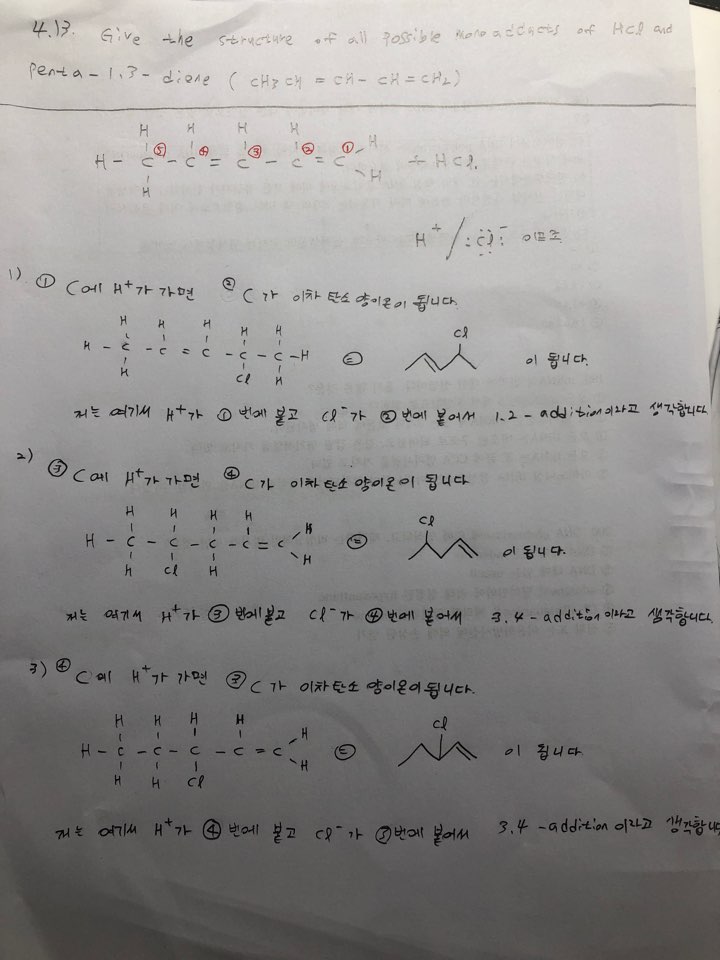 4.13. Give the structure of all possible monoadducts of HCl and
Penta-1.3-diene ( CH3CH = CH - CH = CH2 )
H H H H
H - C⑤ - C④ = C③ - C② = C① H + HCl.
H H
H+ / :Cl:- 이므로
1) ① C에 H+가 가면 ② C가 이차탄소 양이온이 됩니다.
H H H H H
H - C - C = C - C - C - H = Cl 이 됩니다.
H Cl H
저는 여기서 H+가 ① 번에 붙고 Cl-가 ② 번에 붙어서 1.2-addition이라고 생각합니다.
2) ③ C에 H+가 가면 ④ C가 이차탄소 양이온이 됩니다
H H H H H
H - C - C - C - C = C H = Cl 이 됩니다.
H Cl H
저는 여기서 H+가 ③ 번에 붙고 Cl-가 ④ 번에 붙어서 3.4-addition이라고 생각합니다.
3) ④ C에 H+가 가면 ③ C가 이차탄소 양이온이 됩니다.
H H H H H
H - C - C - C - C = C H = Cl 이 됩니다
H H Cl
저는 여기서 H+가 ④ 번에 붙고 Cl-가 ③ 번에 붙어서 3.4-addition이라고 생각합니다